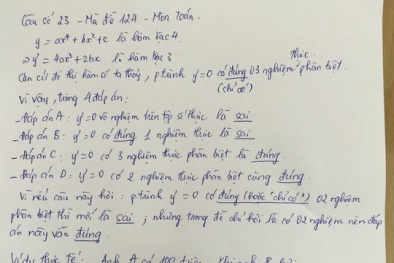 Câu số 23 - Mã đề 124 - Môn Toán.
y = ax⁴ + bx² + c là hàm bậc 4.
⇒ y' = 4ax³ + 2bx là hàm bậc 3
thực
Căn cứ đồ thị hàm số ta thấy, ptrình y' = 0 có đúng 03 nghiệm phân biệt.
(chỉ có)
Vì vậy, từng 4 đáp án:
- Đáp án A: y' = 0 vô nghiệm trên tập số thực là sai
- Đáp án B: y' = 0 có đúng 1 nghiệm thực là sai
- Đáp án C: y' = 0 có 3 nghiệm thực phân biệt là đúng.
- Đáp án D: y' = 0 có 2 nghiệm thực phân biệt cũng đúng.
Vì nếu câu này hỏi: ptrình y' = 0 có đúng (hoặc "chỉ có") 02 nghiệm
phân biệt thì mới là sai; nhưng trong đề chỉ hỏi là có 02 nghiệm nên đáp
án này vẫn đúng.
Ví dụ thực tế: Anh A có 100 triệu